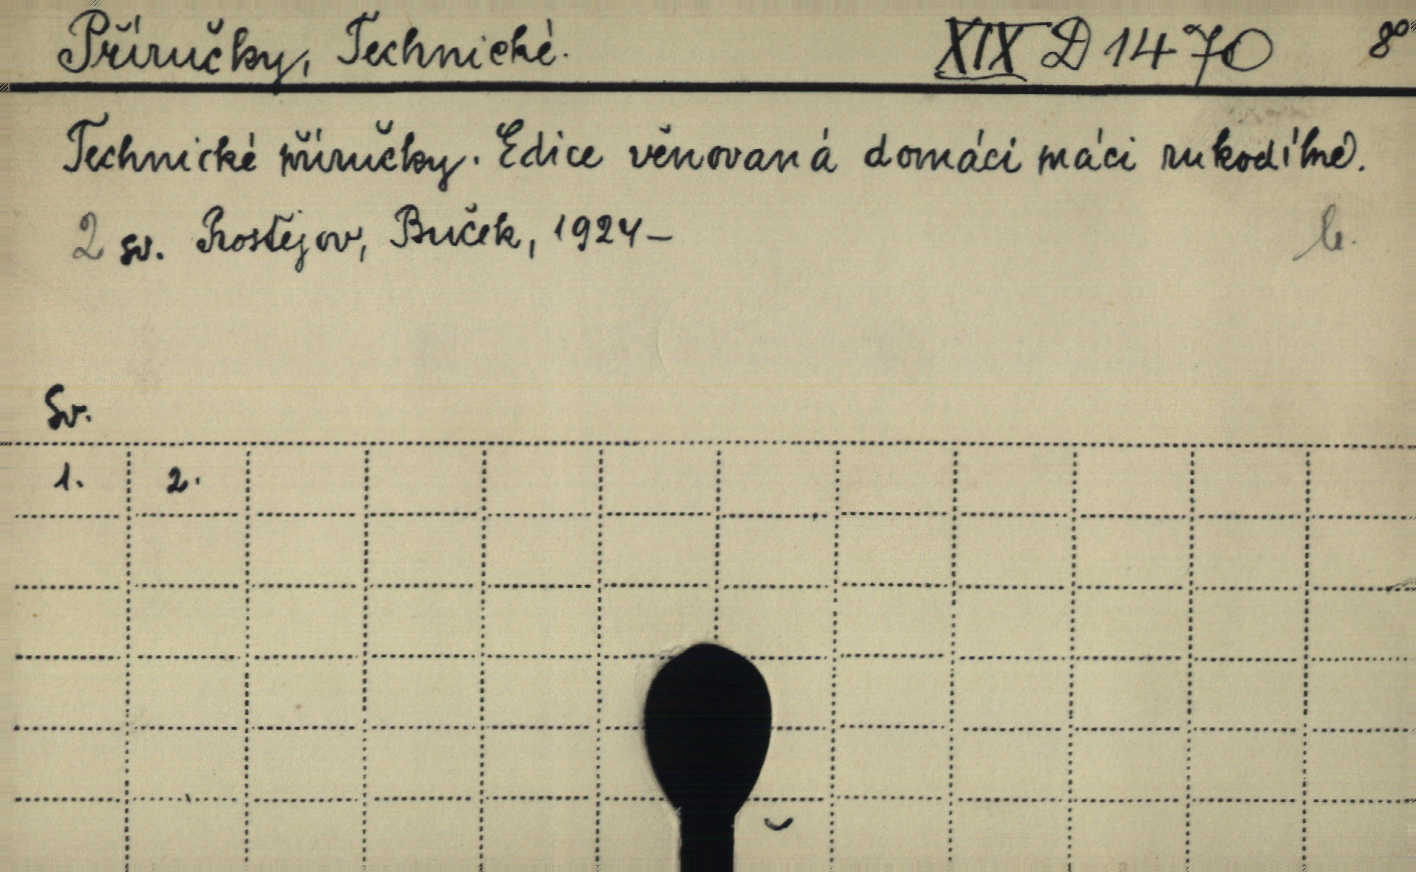 Příručky, Technické. XIX D 1470 8°
Technické příručky. Edice věnovaná domácí práci rukodílné.
2 sv. Prostějov, Buček, 1924–
Sv.
1. 2.